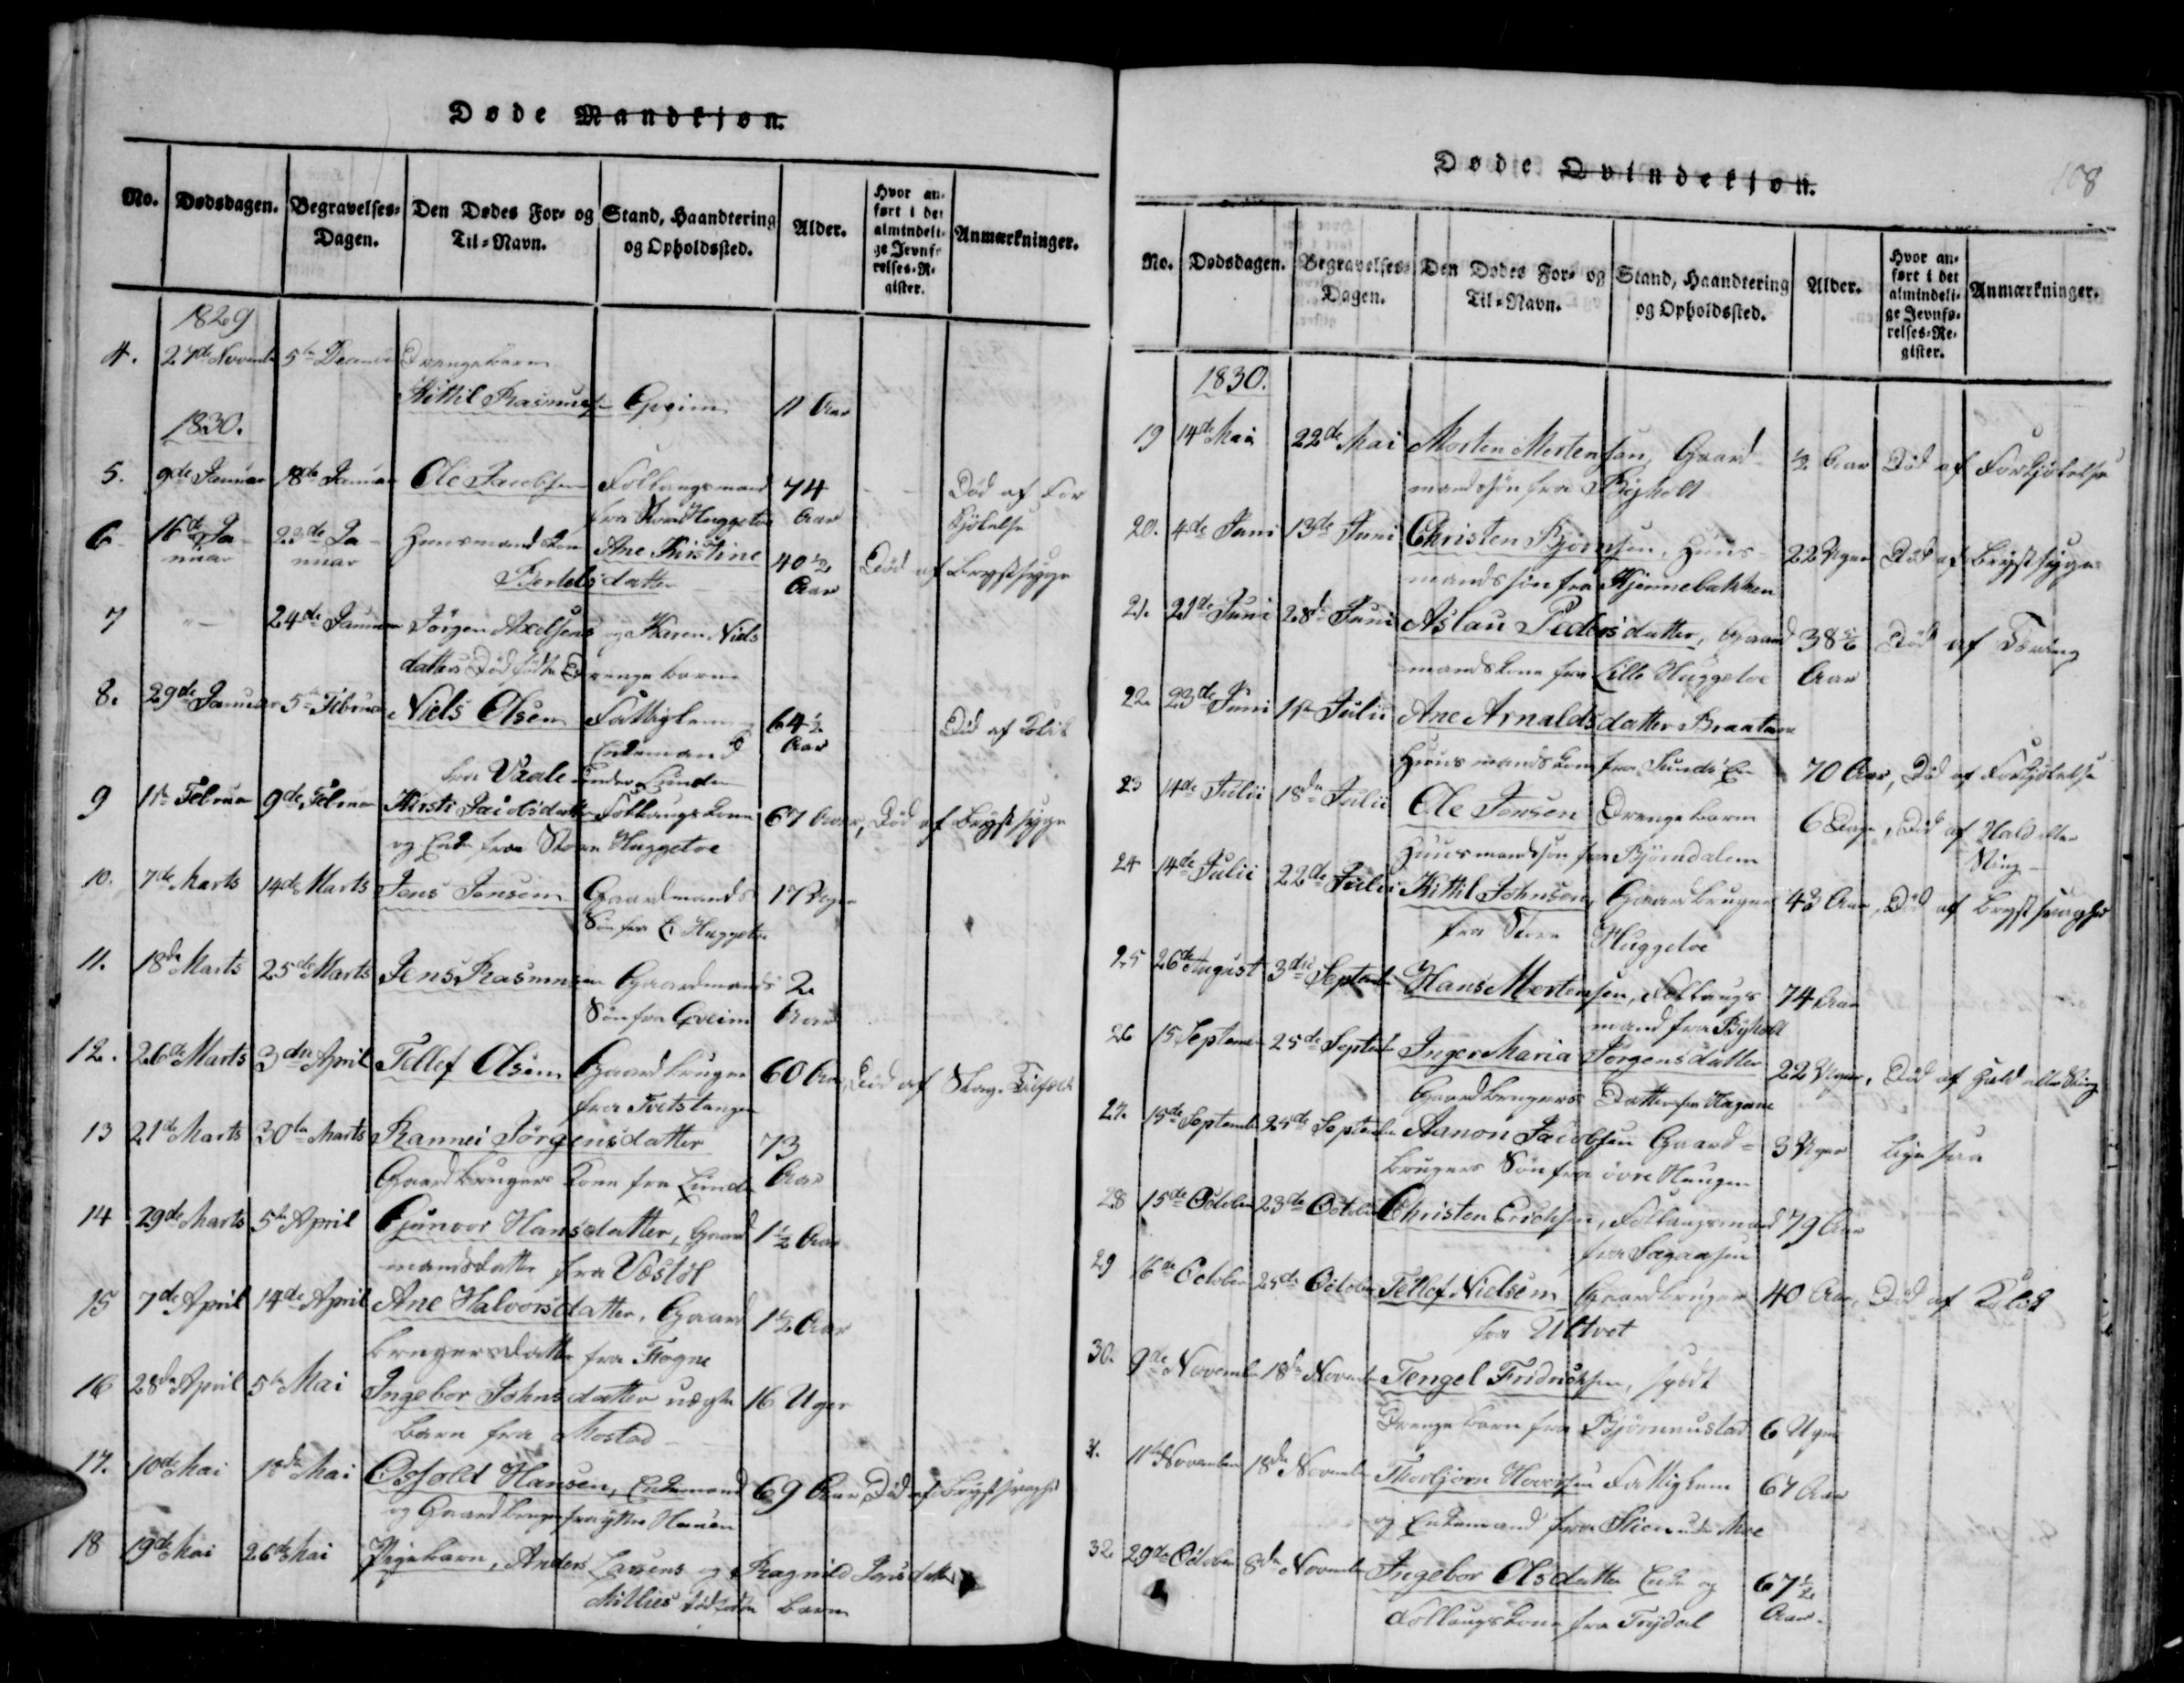 Døde Mandkjøn.
No. Dødsdagen. Begravelses-Dagen. Den Dødes For- og Til-Navn. Stand, Haandtering og Opholdssted. Alder. Hvor anført i det almindelige Jevnførelses-Register. Anmærkninger.
1829
4. 27de Novemb 5te December Drengebarn
Kittil Rasmusen Gveim 11 Aar
1830.
5. 9de Januar 18de Januar Ole Jacobsen Follaugsmand 74 Død af For
fra Store Huggetoe Aar kjølelse
6. 16de Ja- 23de Ja- Huusmandskone Ane Kirstine 40½ Død af Brystsyge
nuar nuar Bertelsdatter Aar
7 "- 24de Januar Jørgen Axelsens og Karen Niels
datters Dødfødte Drengebarn
8. 29de Januar 5te Februar Niels Olsen Fattiglem 64½ Død af Kolik
Enkemand Aar
fra Vaale under Lunden
9 1te Februar 9de Februar Kirsti Jacobsdatter Follaugskone 67 Aar, Død af Brystsyge
og Enke fra Store Huggetoe
10. 7de Marts 14de Marts Jens Jensen Gaardmands 17 Uger
Søn fra L. Huggetoe
11. 18de Marts 25de Marts Jens Rasmusen Gaardmands 2
Søn fra Gveim Aar
12. 26de Marts 3die April Tellef Olsen Gaardbruger 60 Aar, Død af Slag-Tilfælde
fra
13 21de Marts 30te Marts Rannei Jørgensdatter 73
Gaardbrugers Kone fra Lunde Aar
14 29de Marts 5te April Gunvor Hansdatter, Gaard 1½ Aar
mandsdatter fra Vøstøl
15 7de April 14de April Ane Halvorsdatter, Gaard 1½ Aar
brugersdatter fra Fogne
16 28de April 5te Mai Ingebor Johnsdatter uægte 16 Uger
barn fra Mostad
17. 10de Mai 18de Mai Osfold Hansen, Enkemand 69 Aar, Død af Brystsvaghed
og Gaardbruger fra yttre Hauen
18 19de Mai 26de Mai Pigebarn, Anders Larsens og Ragnild Jensdatters
Millies dødfødte barn
Døde Qvindekjøn.
108
No. Dødsdagen. Begravelses-Dagen. Den Dødes For- og Til-Navn. Stand, Haandtering og Opholdssted. Alder. Hvor anført i det almindelige Jevnførelses-Register. Anmærkninger.
1830.
19 14de Mai 22de Mai Morten Mortensen, Gaard- ½ Aar Død af Forkjølelse
mandssøn fra Byholt
20. 4de Juni 13de Juni Christen Bjørnsen, Huus- 22 Uger Død af Brystsyge
mandssøn fra Kjennebakken
21. 21de Juni 28de Juni Aslau Pedersdatter, Gaard 38 5/6 Død af Tæring
mandskone fra Lille Huggetoe Aar
22. 23de Juni 1te Julii Ane Arnaldsdatter Braatene
Huusmandskone fra 70 Aar, Død af Forkjølelse
23 14de Julii 18de Julii Ole Jensen Drengebarn 6 Dage, Død af Hald eller
Huusmandssøn fra Bjørndalen Sting-
24 14de Julii 22de Julii Kittil Johnsen, Gaardbruger 43 Aar, Død af Brystsvaghed
fra Store Huggetoe
25 26de August 3die Septemb Hans Mortensen, Follaugs 74 Aar
mand fra Byholt
26 15 September 25de Septemb Inger Maria Jørgensdatter 22 Uger, Død af Hald eller Sting
Gaardbrugers Datter fra Hagane
27. 15de Septemb 25de Septemb Aanon Jacobsen Gaard- 3 Uger ligesaa
brugers Søn fra övre Haugen
28 15de October 23de October Christen Erichsen, Follaugsmand 79 Aar
fra
29 16de October 25de October Tellef Nielsen Gaardbruger 40 Aar, Død af Kolik
fra Ultvet
30. 9de Novemb 18de Novemb Tengel Fridrichsen, spædt
Drengebarn fra Bjønnustad 6 Uger
31. 11te November 18de Novemb Thorbjørn Havorsen Fattiglem 67 Aar
og Enkemand fra Skien under Moe
32. 29de October 8de Novemb Ingebor Olsdatter Enke og 67½
Follaugskone fra Trydal Aar.